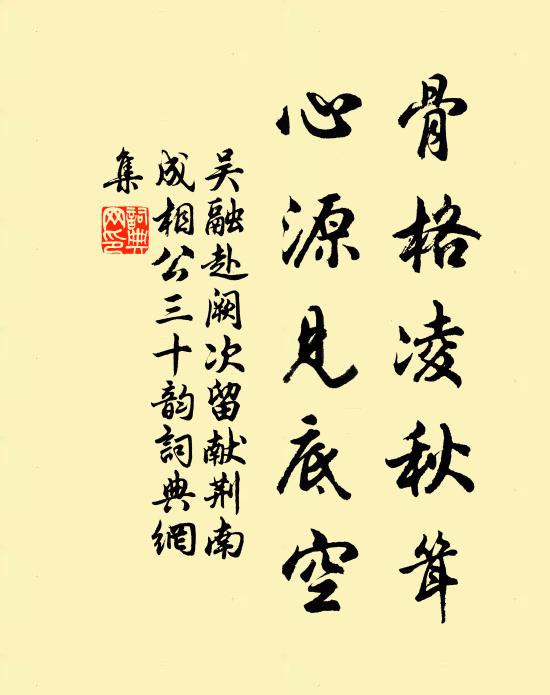 骨格凌秋耸
心源见底空
吴融赴阙次留献荆南
成相公三十韵詞典網
集
詞典
网印